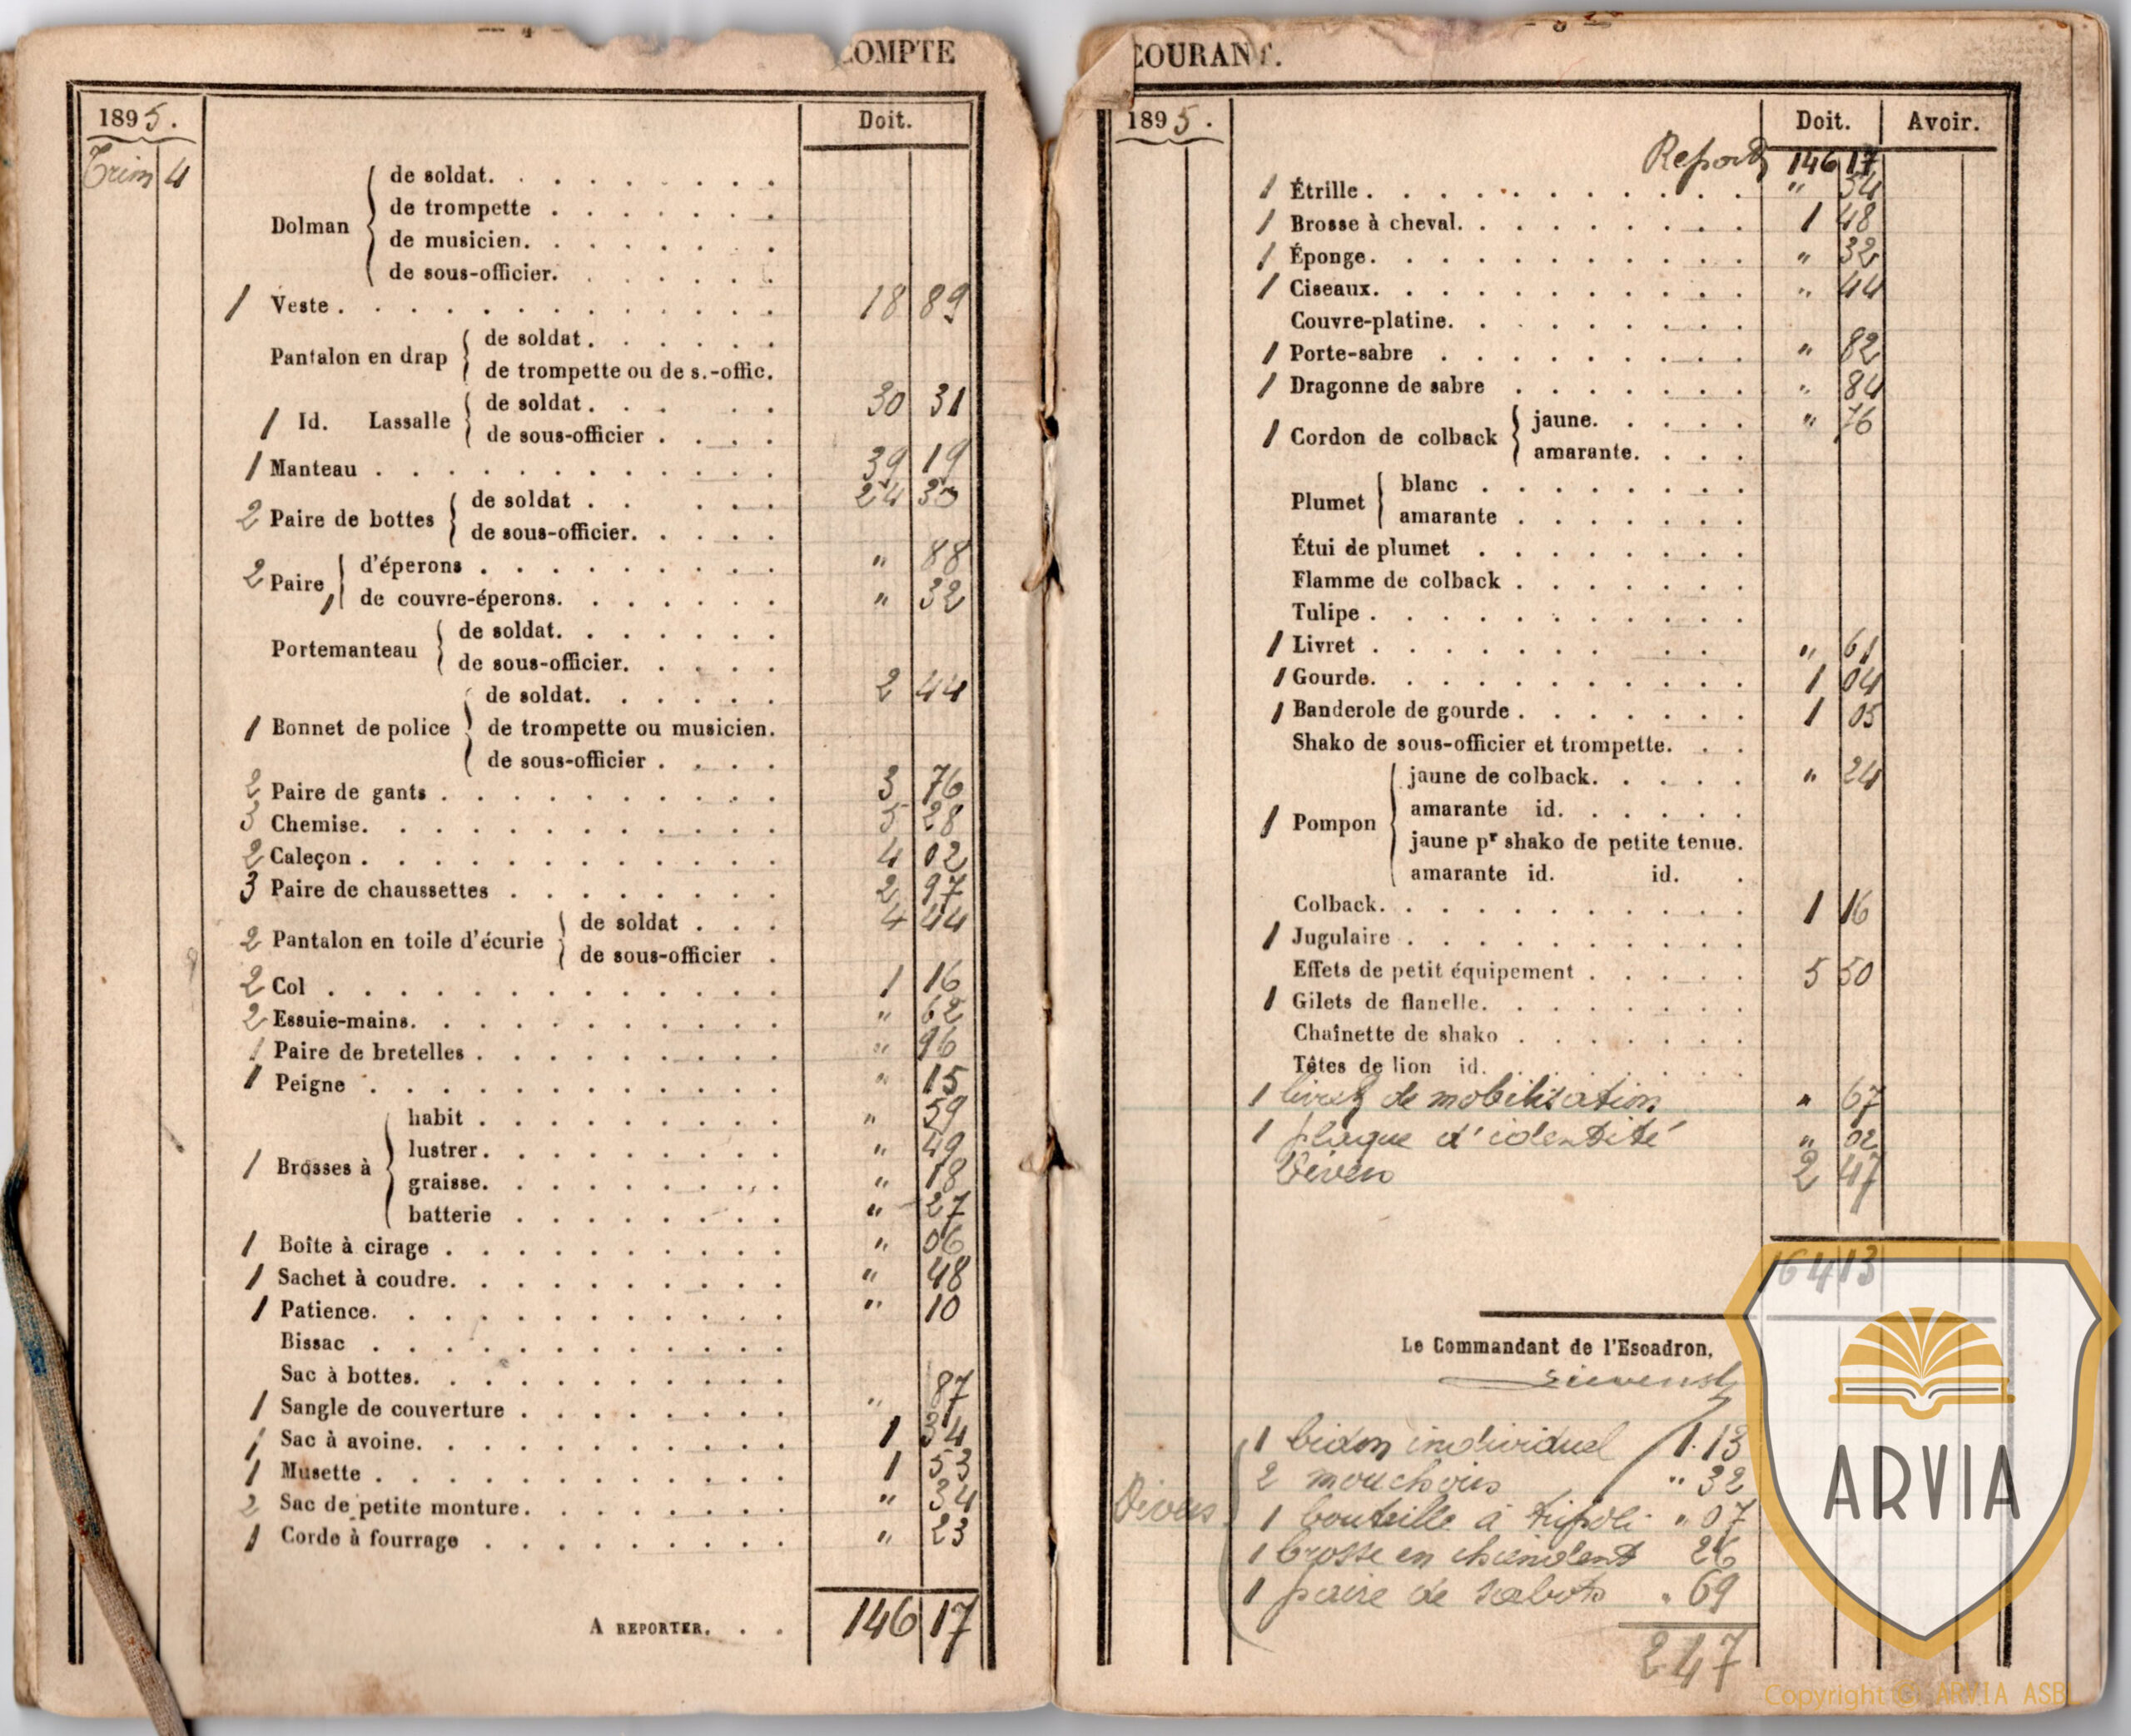 COMPTE
1895.
Doit.
Trim 4
Dolman
de soldat.
de trompette
de musicien.
de sous-officier.
1 Veste . 18 89
Pantalon en drap
de soldat.
de trompette ou de s.-offic.
1 Id. Lassalle
de soldat. 30 31
de sous-officier .
1 Manteau . 39 19
2 Paire de bottes
de soldat . 24 30
de sous-officier.
2 Paire
d'éperons . " 88
1 de couvre-éperons. " 32
Portemanteau
de soldat.
de sous-officier.
1 Bonnet de police
de soldat. 2 44
de trompette ou musicien.
de sous-officier .
2 Paire de gants . 3 76
3 Chemise. 5 28
2 Caleçon . 4 02
3 Paire de chaussettes . 2 97
2 Pantalon en toile d'écurie
de soldat . 4 44
de sous-officier .
2 Col . 1 16
2 Essuie-mains. " 62
1 Paire de bretelles . " 96
1 Peigne . " 15
1 Brosses à
habit . " 59
lustrer. " 49
graisse. " 18
batterie . " 27
1 Boîte à cirage . " 06
1 Sachet à coudre. " 48
1 Patience. " 10
Bissac .
Sac à bottes.
1 Sangle de couverture . " 87
1 Sac à avoine. 1 34
1 Musette . 1 53
2 Sac de petite monture. " 34
1 Corde à fourrage . " 23
A REPORTER. 146 17
COURANT.
1895.
Doit. Avoir.
Report 146 17
1 Étrille . " 54
1 Brosse à cheval. 1 48
1 Éponge. " 32
1 Ciseaux. " 44
Couvre-platine.
1 Porte-sabre . " 82
1 Dragonne de sabre . " 84
1 Cordon de colback
jaune. " 76
amarante.
Plumet
blanc .
amarante .
Étui de plumet .
Flamme de colback .
Tulipe .
1 Livret . " 61
1 Gourde. 1 04
1 Banderole de gourde . 1 05
Shako de sous-officier et trompette.
1 Pompon
jaune de colback. " 24
amarante id.
jaune pr shako de petite tenue.
amarante id. id. .
Colback.
1 Jugulaire . 1 16
Effets de petit équipement .
1 Gilets de flanelle. 5 50
Chaînette de shako .
Têtes de lion id.
1 livret de mobilisation " 67
1 plaque d'identité " 02
Divers 2 47
164 13
Le Commandant de l'Escadron,
Divers
1 bidon individuel 1.13
2 mouchoirs " 32
1 bouteille à tripoli " 07
1 brosse en chiendent 26
1 paire de sabots " 69
2 47
ARVIA
Copyright © ARVIA ASBL